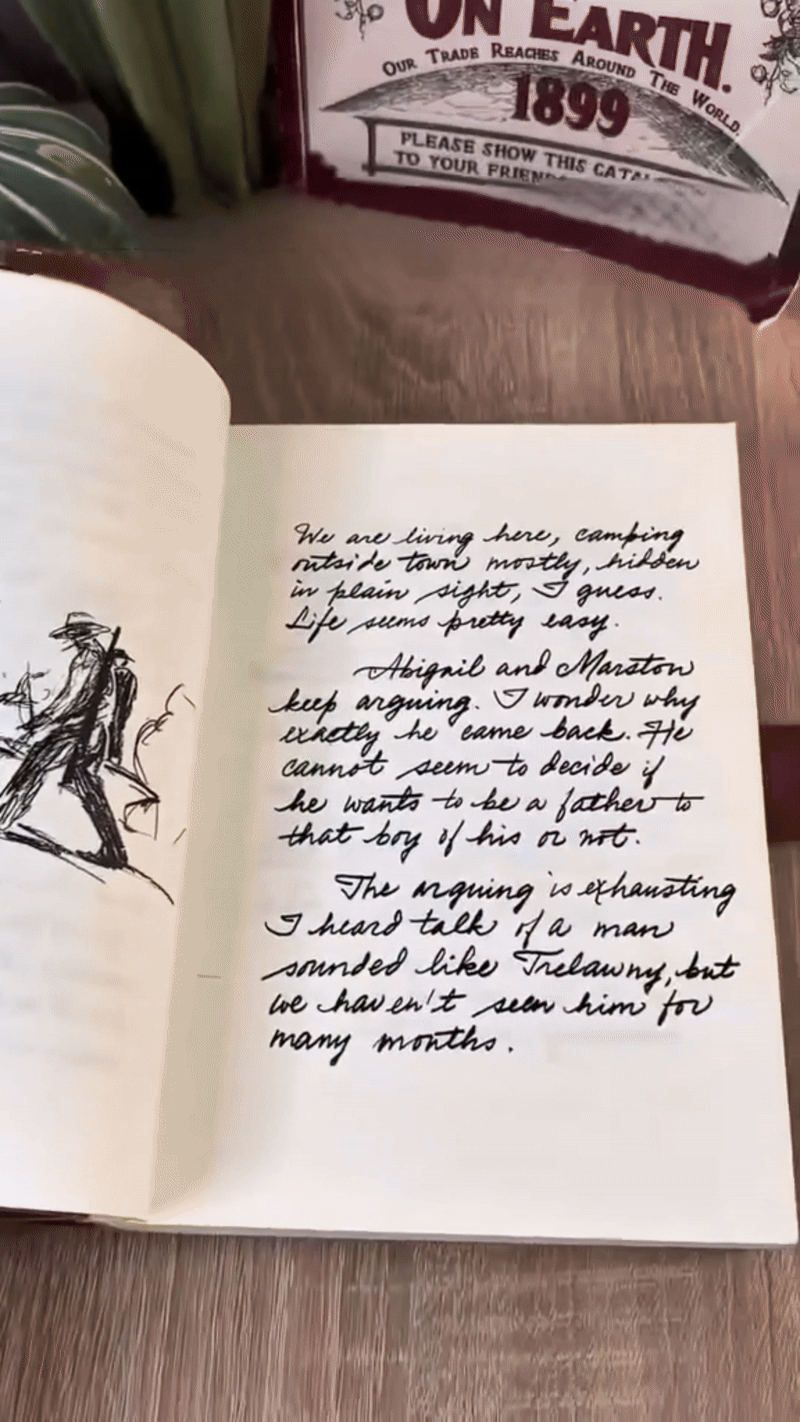 ON EARTH.
OUR TRADE REACHES AROUND THE WORLD.
1899
PLEASE SHOW THIS
TO YOUR
We are living here, camping
outside town mostly, hidden
in plain sight, I guess.
Life seems pretty easy.
Abigail and Marston
keep arguing. I wonder why
exactly he came back. He
cannot seem to decide if
he wants to be a father to
that boy of his or not.
The arguing is exhausting
I heard talk of a man
sounded like Trelawny, but
we haven't seen him for
many months.